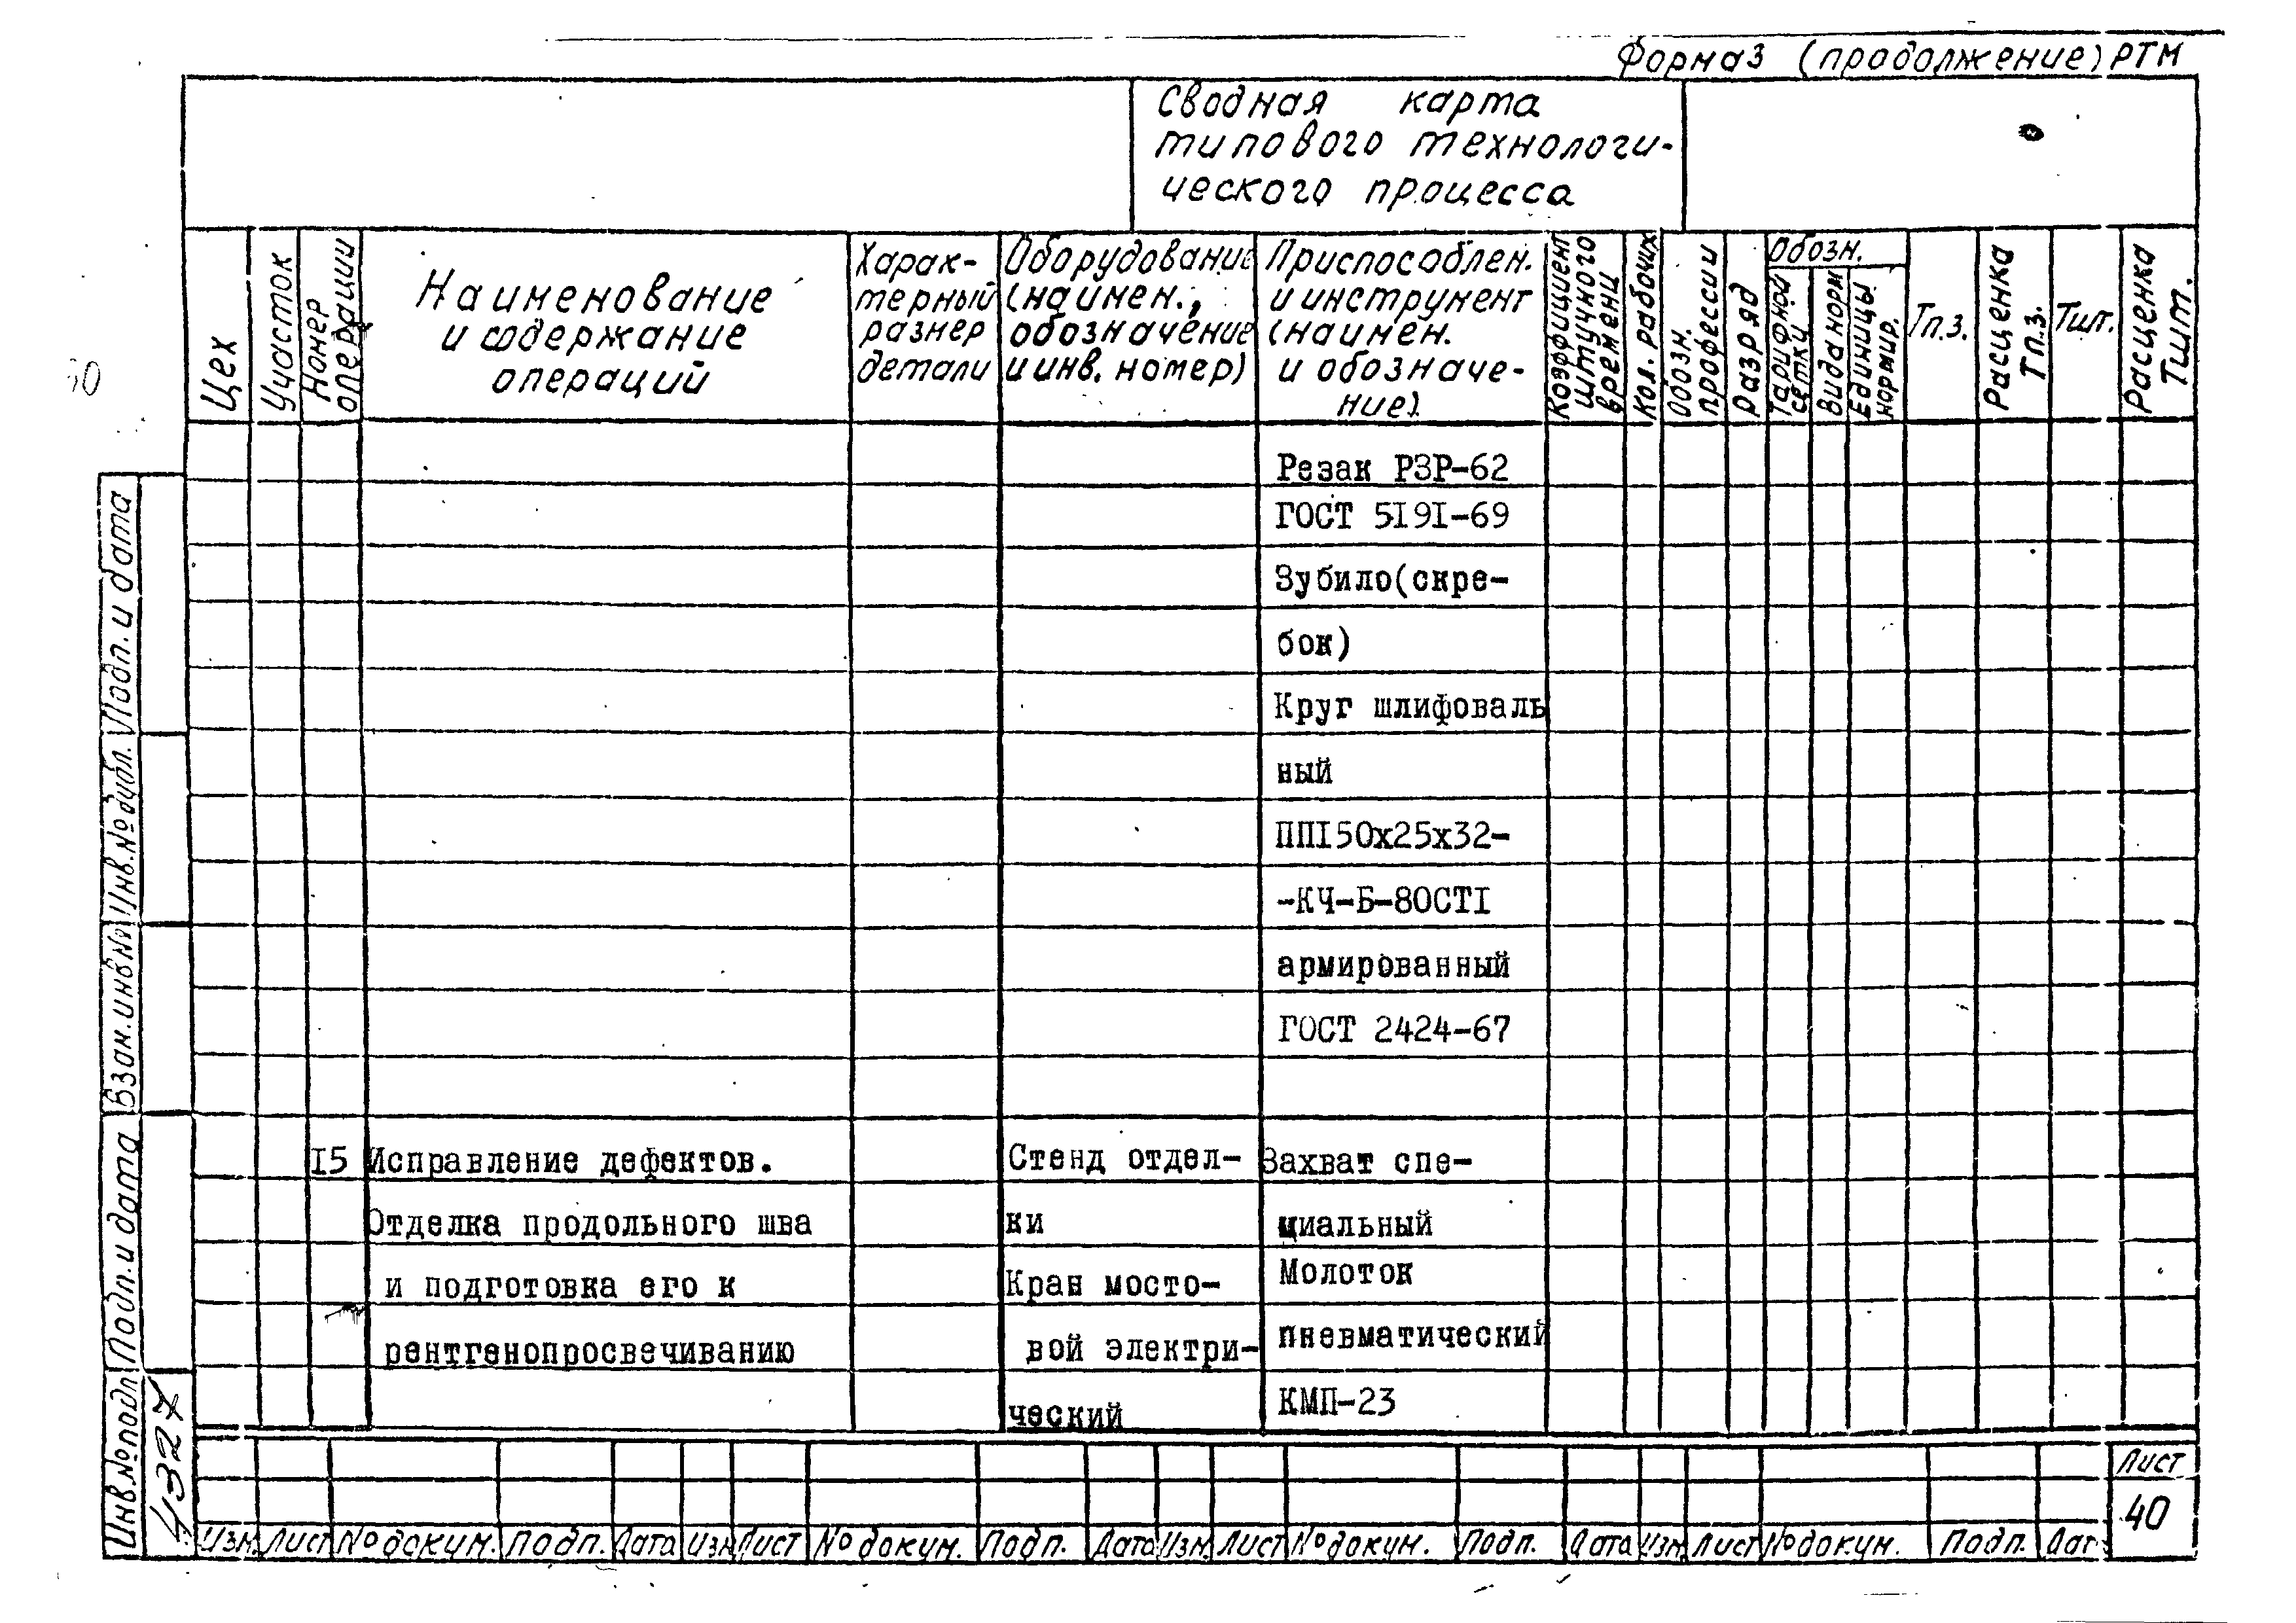 Форма 3 (продолжение) РТМ
Сводная карта
типового технологи-
ческого процесса
Цех
Участок
Номер
операции
Наименование
и содержание
операций
Харак-
терный
размер
детали
Оборудование
(наимен.,
обозначение
и инв. номер)
Приспособлен.
и инструмент
(наимен.
и обозначе-
ние).
Коэффициент
штучного
времени
Кол. рабочих
Обозн.
профессии
Разряд
Обозн.
Тарифной
сетки
Вида норм
Единицы
нормир.
Тп.з.
Расценка
Тп.з.
Тшт.
Расценка
Тшт.
Резак РЗР-62
ГОСТ 5I9I-69
Зубило(скре-
бок)
Круг шлифоваль
ный
ППI50х25х32-
-КЧ-Б-80СТI
армированный
ГОСТ 2424-67
I5 Исправление дефектов. Стенд отдел- Захват спе-
Отделка продольного шва ки циальный
и подготовка его к Кран мосто- Молоток
рентгенопросвечиванию вой электри- пневматический
ческий КМП-23
Подп. и дата
Инв.№ дубл.
Взам.инв№
Подп. и дата
Инв.№ подл
4327
Изм. Лист № докум. Подп. Дата Изм Лист № докум. Подп. Дата Изм. Лист № докум. Подп. Дата Изм Лист № докум. Подп. Дат
Лист
40